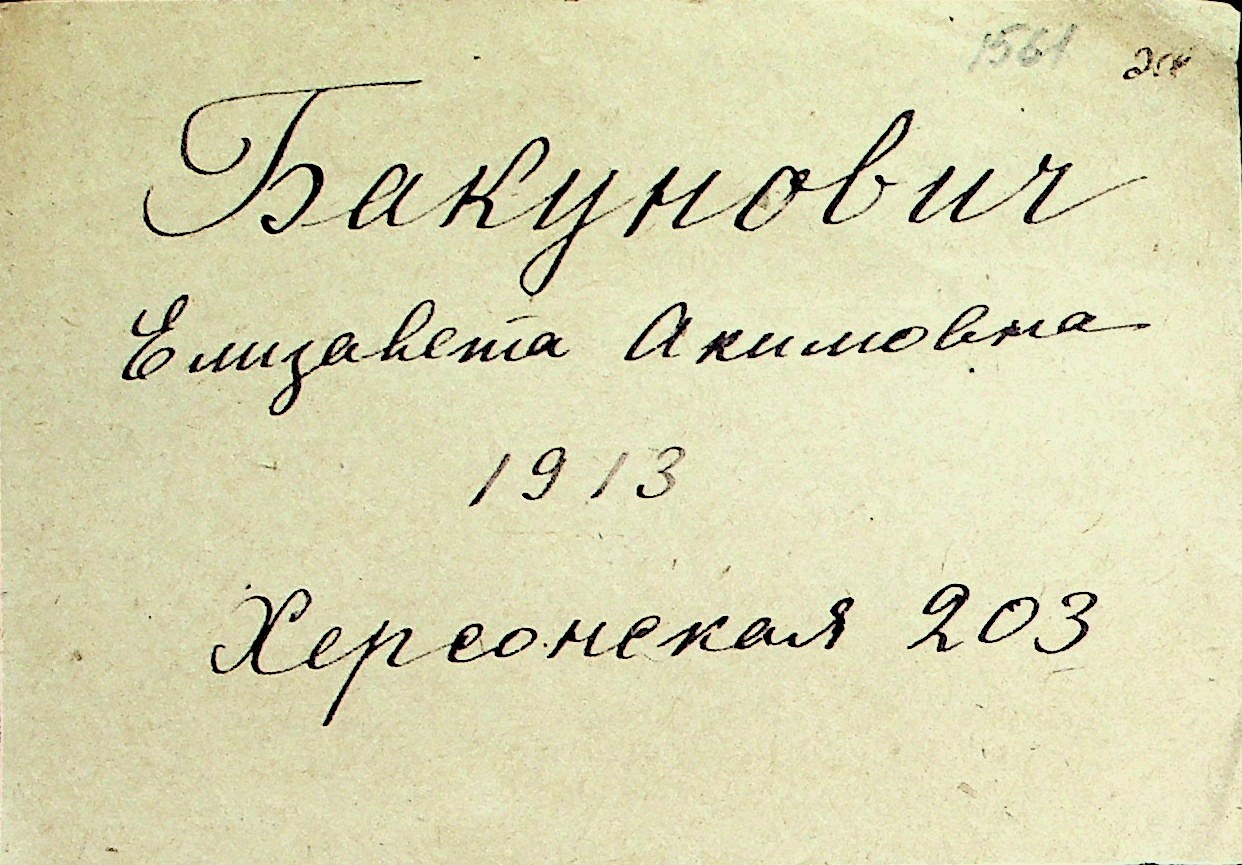 1561
Бакунович
Елизавета Акимовна
1913
Херсонская 203